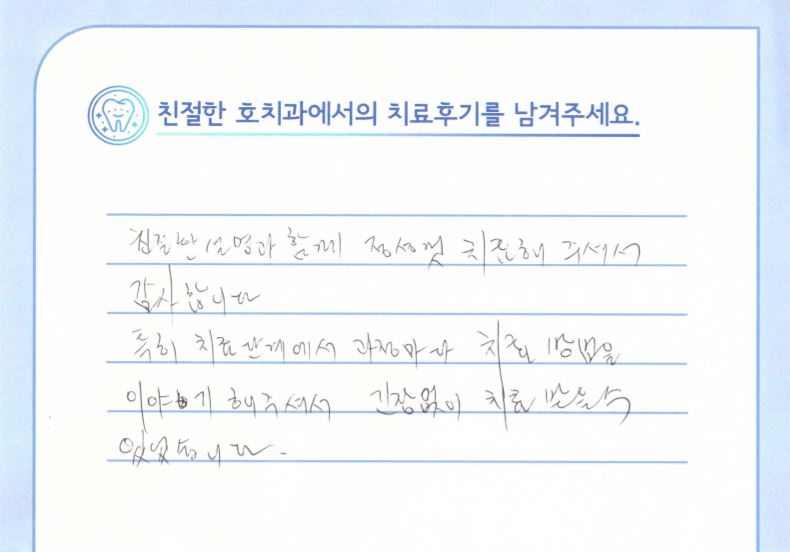 친절한 호치과에서의 치료후기를 남겨주세요.
친절한 설명과 함께 정성껏 치료해 주셔서
감사합니다
특히 치료단계에서 과정마다 치료 방법을
이야기 해주셔서 긴장없이 치료 받을수
있었습니다.